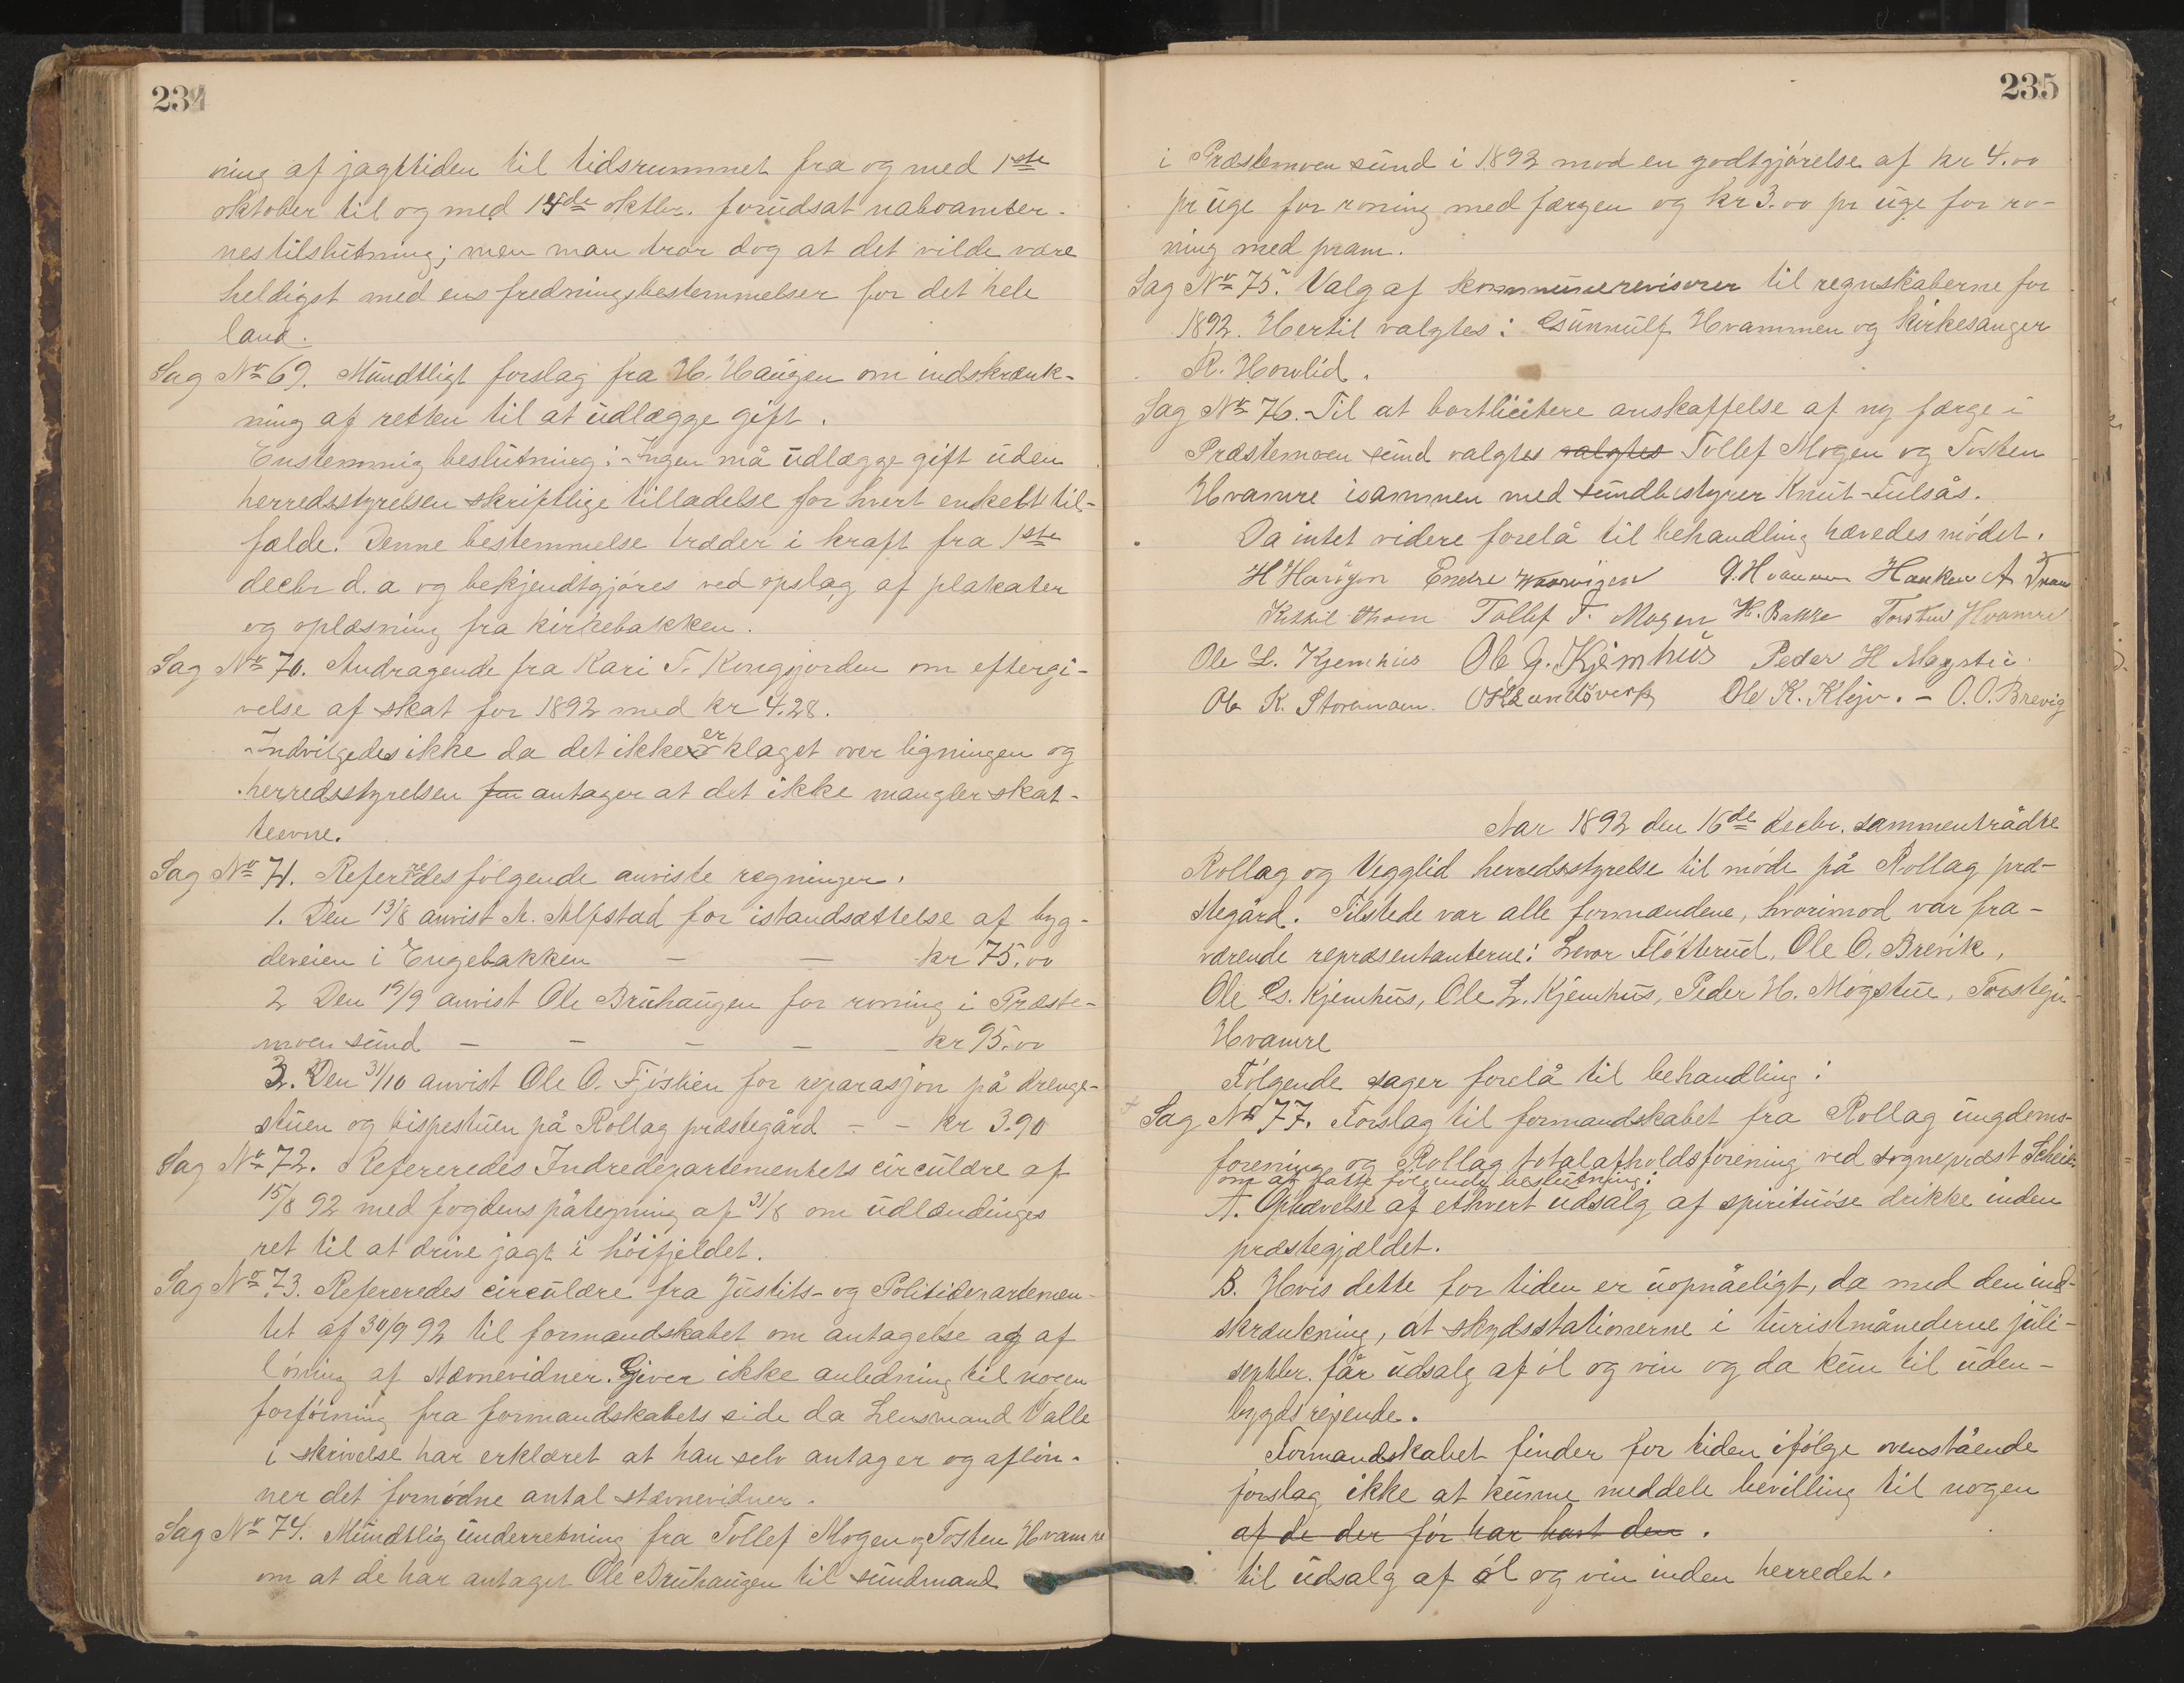 234
ning af jagttiden til tidsrummet fra og med 1ste
oktober til og med 15de oktbr. forudsat naboamter-
nes tilslutning; men man tror dog at det vilde være
heldigst med ens fredningsbestemmelser for det hele
land.
Sag No 69. Mundtligt forslag fra H. Haugen om indskrænk-
ning af retten til at udlægge gift.
Enstemmig beslutning: Ingen må udlægge gift uden
herredsstyrelsen skriftlige tilladelse for hvert enkelt til-
fælde. Denne bestemmelse træder i kraft fra 1ste
decbr d. a og bekjendtgjøres ved opslag af plakater
og oplæsning fra kirkebakken.
Sag No 70. Andragende fra Kari T. Kongsjorden om eftergi-
velse af skat for 1892 med kr 4.28.
Indvilgedes ikke da det ikke er klaget over ligningen og
herredsstyrelsen antager at det ikke mangler skat-
teevne.
Sag No 71. Refereredes følgende anviste regninger.
1. Den 13/8 anvist A. Alfstad for istandsættelse af byg-
deveien i Engebakken — — kr 75.00
2 Den 19/9 anvist Ole Bruhaugen for roning i Præste-
moen sund — — — — — kr 95.00
3. Den 31/10 anvist Ole O. Fjøslien for reparasjon på drenge-
stuen og bispestuen på Rollag præstegård — — kr 3.90
Sag No 72. Refereredes Indredepartementets circulære af
15/8 92 med fogdens påtegning af 31/8 om udlændinges
ret til at drive jagt i høifjeldet.
Sag No 73. Refereredes circulære fra Justits- og Politidepartemen-
tet af 30/9 92 til formandskabet om antagelse og af
lønning af stævnevidner. Giver ikke anledning til nogen
forføining fra formandskabets side da Lensmand Valle
i skrivelse har erklæret at han selv antager og afløn-
ner det fornødne antal stævnevidner.
Sag No 74. Mundtlig underretning fra Tollef Mogen og Tosten Hvamre
om at de har antaget Ole Bruhaugen til sundmand
235
i Præstemoen sund i 1892 mod en godtgjørelse af kr 4.00
pr uge for roning med færgen og kr 3.00 pr uge for ro-
ning med pram.
Sag No 75. Valg af kommunerevisorer til regnskaberne for
1892. Hertil valgtes: Gunnulf Hvammen og kirkesanger
R. Howlid.
Sag No 76. Til at bortlicitere anskaffelse af ny færge i
Præstemoen sund valgtes valgtes Tollef Mogen og Tosten
Hvamre isammen med sundbestyrer Knut Tulsås.
Da intet videre forelå til behandling hævedes mødet.
H Haugen Endre G. Hvammen Haaken A Traaen
Kittil Tollef T. Mogen K. Bakke Torsten Hvamre
Ole L. Kjemhus Ole G. Kjemhus Peder H Møgstue
Ole K. Stormoen. Ole K. Klejv. — O. O. Brevig
Aar 1892 den 16de decbr. sammentrådte
Rollag og Vegglid herredsstyrelse til møde på Rollag præ-
stegård. Tilstede var alle formændene, hvorimod var fra-
værende repræsentanterne: Levor Fløtterud, Ole O. Brevik,
Ole G. Kjemhus, Ole L. Kjemhus, Peder H. Møgstue, Torstejn
Hvamre
Følgende sager forelå til behandling:
Sag No 77. Forslag til formandskabet fra Rollag ungdoms-
forening og Rollag totalafholdsforening ved sogneprest
om at fatte følgende beslutning:
A. Ophævelse af ethvert udsalg af spirituøse drikke inden
præstegjældet.
B. Hvis dette for tiden er uopnåeligt, da med den ind-
skrænkning, at skydsstationerne i turistmånederne juli-
septbr. får udsalg af øl og vin og da kun til uden-
bygds rejsende.
Formandskabet finder for tiden ifølge ovenstående
forslag ikke at kunne meddele bevilling til nogen
af de der før har havt den.
til udsalg af øl og vin inden herredet.